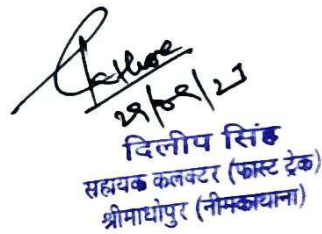 २९/०९/२३
दिलीप सिंह
सहायक कलक्टर (फास्ट ट्रेक)
श्रीमाधोपुर (नीमकाथाना)